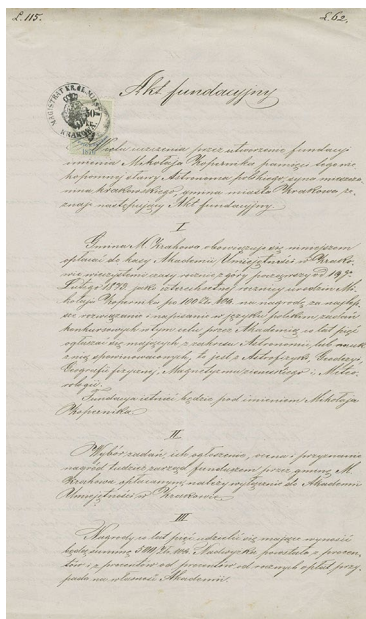 L. 115. L. 62.
Akt fundacyjny
MAGISTRAT KR. GŁ. MIASTA
KRAKOWA
50
W celu uczczenia przez utworzenie fundacyi
imienia Mikołaja Kopernika pamięci tegoż
hopomnej sławy Astronoma polskiego, syna mieszcza-
nina krakowskiego, gmina miasta Krakowa ze-
znaje następujący Akt fundacyjny
I.
Gmina M. Krakowa obowiązuje się niniejszem
opłacać do kasy Akademii Umiejętności w Krako-
wie wieczystemi czasy rocznie z góry począwszy od 19go
Lutego 1873 jako czterechsetnej rocznicy urodzin Mi-
kołaja Kopernika po 100 Zł. wa. na nagrodę za najlep-
sze rozwiązanie i napisanie w języku polskim zadań
konkursowych w tym celu przez Akademią co lat pięć
ogłaszać się mających z zakresu Astronomii, lub nauk
z nią spowinowaconych, to jest z Astrofizyki, Geodezyi,
Geografii fizycznej, Magnetyzmu ziemskiego i Meteo-
rologii.
Fundacya istnieć będzie pod imieniem Mikołaja
Kopernika
II.
Wybór zadań, ich ogłoszenie, ocena i przyznanie
nagród tudzież zarząd funduszem przez gminę M.
Krakowa opłacanym należy wyłącznie do Akademii
Umiejętności w Krakowie
III.
Nagroda co lat pięć udzielić się mająca wynosić
będzie sumę 500 Zł. wa. Nadwyżka powstała z procen-
tów i z procentów od procentów od rocznych opłat przy-
pada na własność Akademii.